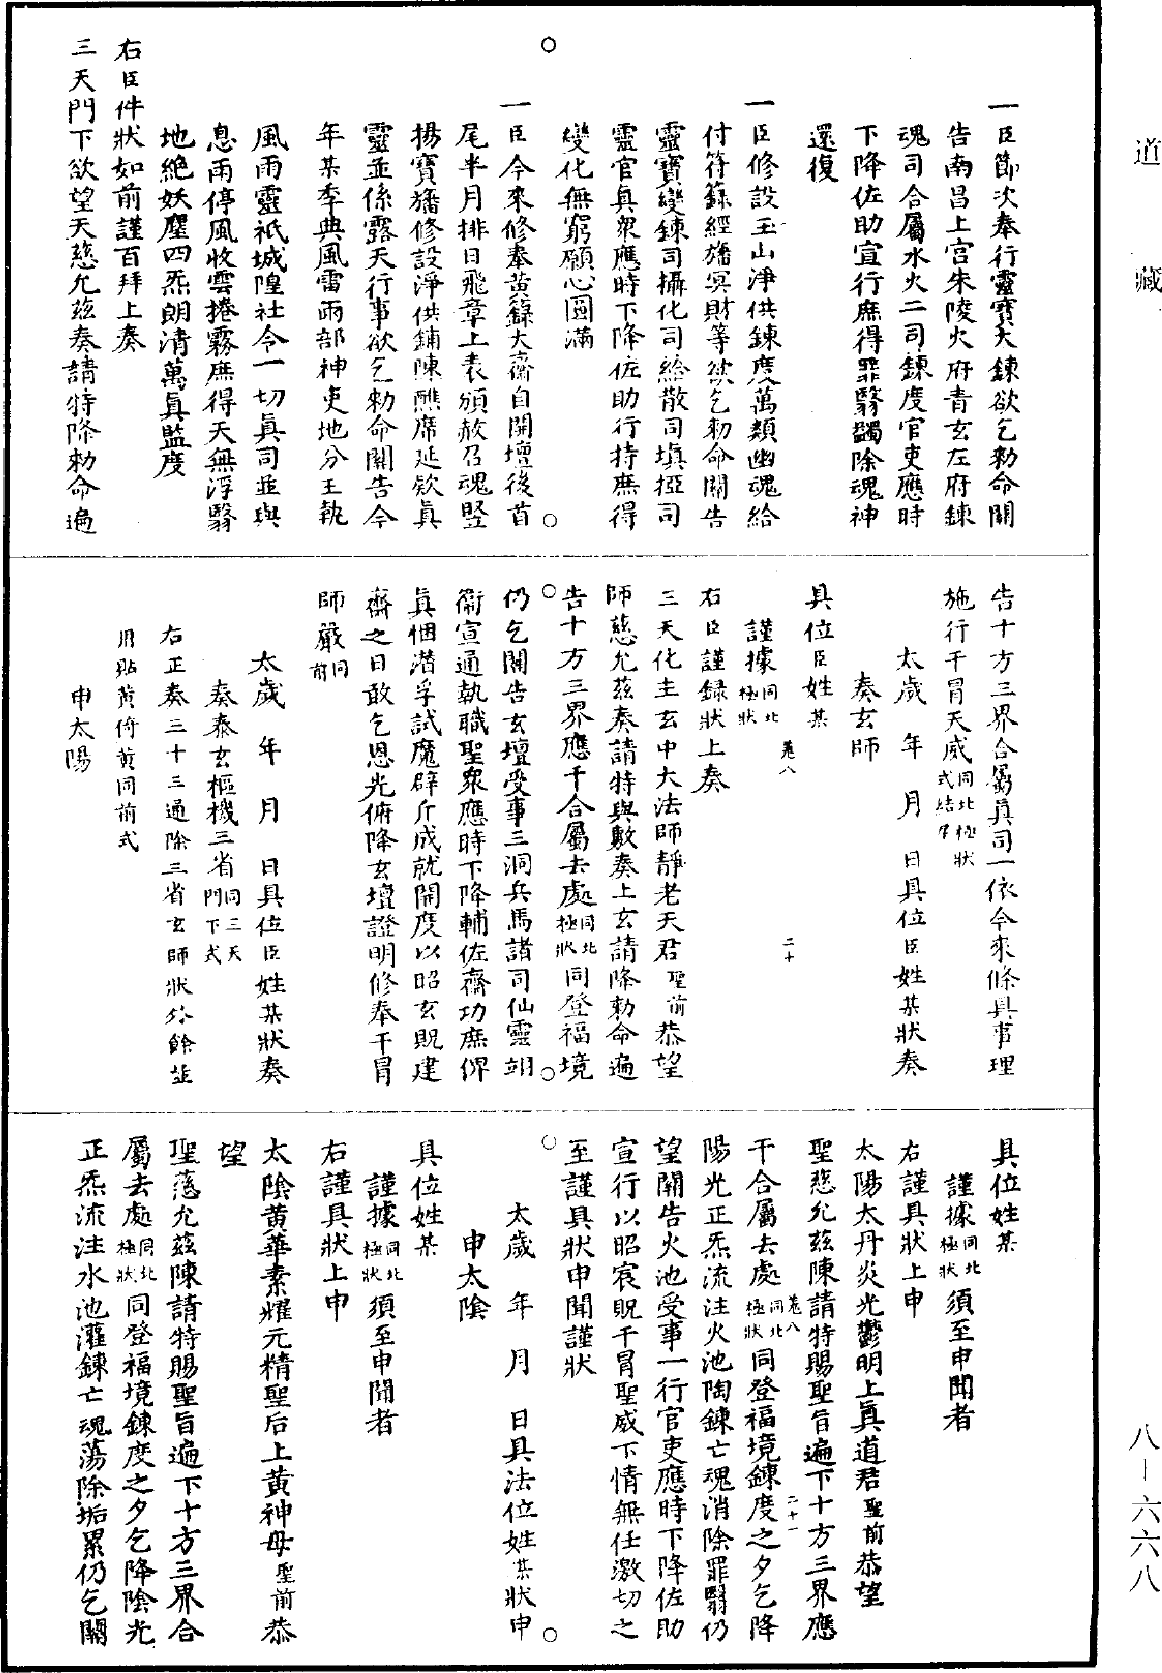 道藏
一臣節次奉行靈寶大鍊欲乞勑命關
告南昌上宮朱陵火府青玄左府鍊
魂司合屬水火二司鍊度官吏應時
下降佐助宣行庶得罪翳蠲除魂神
還復
一臣修設玉山淨供鍊度萬類幽魂給
付符籙經旛冥財等欲乞勑命關告
靈寶變鍊司攝化司給散司塡掗司
靈官真衆應時下降佐助行持庶得
變化無窮願心圓滿
一臣今來修奉黃籙大齋自開壇後首
尾半月排日飛章上表頒赦召魂豎
揚寶旛修設淨供鋪陳醮席延欵眞
靈並係露天行事欲乞勑命關告今
年某季典風雷雨部神吏地分王執
風雨靈祇城隍社令一切眞司並與
息雨停風收雲捲霧庶得天無浮翳
地絕妖塵四炁朗清萬眞監度
右臣件狀如前謹百拜上奏
三天門下欲望天慈允茲奏請特降勑命遍
告十方三界合屬真司一依今來條具事理
施行干冒天威同北極狀式結尾
太歲 年 月 日具位臣姓某狀奏
奏玄師
具位臣姓某
謹據同北極狀
卷八 二十
右臣謹録狀上奏
三天化主玄中大法師靜老天君聖前恭望
師慈允茲奏請特與敷奏上玄請降勑命遍
告十方三界應干合屬去處同北極狀同登福境
仍乞關告玄壇受事三洞兵馬諸司仙靈翊
衞宣通執職聖衆應時下降輔佐齋功庶俾
眞個潛孚試魔辟斥成就開度以昭玄貺建
齋之日敢乞恩光俯降玄壇證明修奉干冒
師嚴同前
太歲 年 月 日具位臣姓某狀奏
奏泰玄樞機三省同三天門下式
右正奏三十三通除三省玄師狀外餘並
用貼黃倚黃同前式
申太陽
具位姓某
謹據同北極狀須至申聞者
右謹具狀上申
太陽太丹炎光鬱明上眞道君聖前恭望
聖慈允茲陳請特賜聖旨遍下十方三界應
卷八 二十一
干合屬去處同北極狀同登福境鍊度之夕乞降
陽光正炁流注火池陶鍊亡魂消除罪翳仍
望關告火池受事一行官吏應時下降佐助
宣行以昭宸貺干冒聖威下情無任激切之
至謹具狀申聞謹狀
太歲 年 月 日具法位姓某狀申
申太陰
具位姓某
謹據同北極狀須至申聞者
右謹具狀上申
太陰黃華素耀元精聖后上黃神母聖前恭
望
聖慈允茲陳請特賜聖旨遍下十方三界合
屬去處同北極狀同登福境鍊度之夕乞降陰光
正炁流注水池灌鍊亡魂蕩除垢累仍乞關
八—六六八